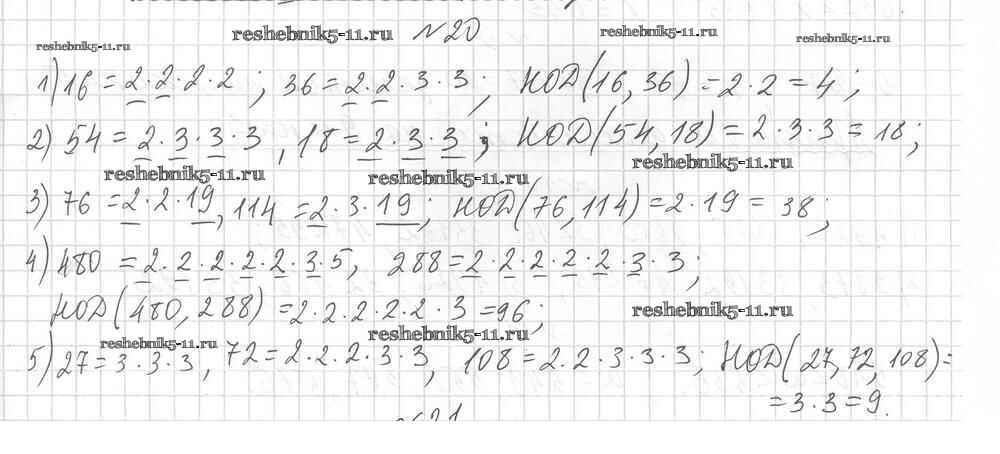 №20
reshebnik5-11.ru reshebnik5-11.ru reshebnik5-11.ru reshebnik5-11.ru
1) 16 = 2·2·2·2 ; 36 = 2·2·3·3 ; НОД(16, 36) = 2·2 = 4 ;
2) 54 = 2·3·3·3 , 18 = 2·3·3 ; НОД(54, 18) = 2·3·3 = 18 ;
reshebnik5-11.ru reshebnik5-11.ru reshebnik5-11.ru
3) 76 = 2·2·19, 114 = 2·3·19 ; НОД(76, 114) = 2·19 = 38 ;
4) 480 = 2·2·2·2·2·3·5, 288 = 2·2·2·2·2·3·3 ;
НОД(480, 288) = 2·2·2·2·2·3 = 96 ;
reshebnik5-11.ru reshebnik5-11.ru reshebnik5-11.ru
5) 27 = 3·3·3, 72 = 2·2·2·3·3, 108 = 2·2·3·3·3 ; НОД(27, 72, 108) =
= 3·3 = 9.